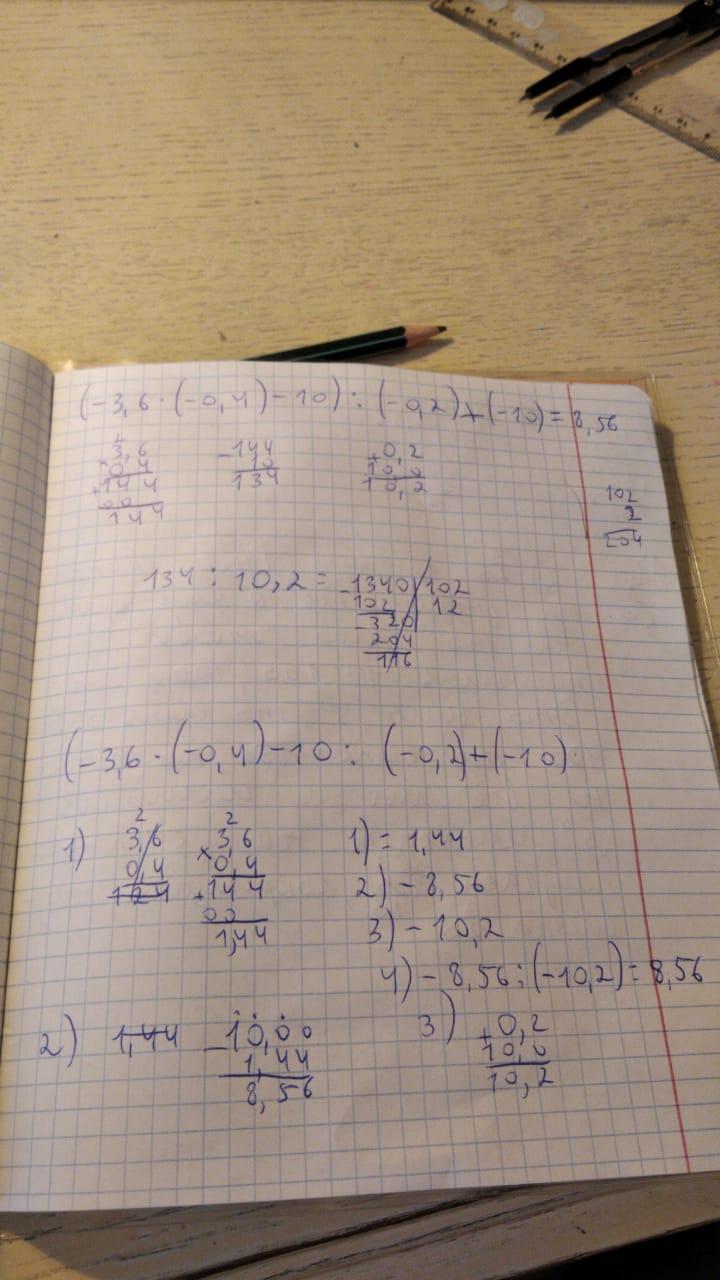 (-3,6 · (-0,4) - 10) : (-0,2) + (-10) = 8,56
2
× 3,6
0,4
+ 144
00
144
- 144
10
134
+ 0,2
10,0
10,2
102
2
204
134 : 10,2 =
- 1340 102
102 12
- 320
204
116
(-3,6 · (-0,4) - 10 : (-0,2) + (-10)
1)
2
3,6
0,4
124
2
× 3,6
0,4
+ 144
00
1,44
1) = 1,44
2) - 8,56
3) - 10,2
4) - 8,56 : (-10,2) = 8,56
2) 1,44
- 10,00
1,44
8,56
3)
+ 0,2
10,0
10,2